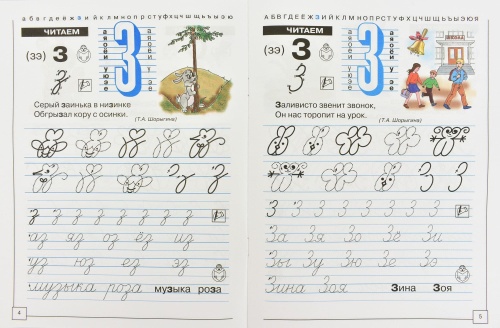 а б в г д е ё ж з и й к л м н о п р с т у ф х ц ч ш щ ъ ы ь э ю
ЧИТАЕМ
(зэ) З
З
Серый заинька в низинке
Обгрызал кору с осинки.
(Т.А. Шорыгина)
з з
з з з з з з з з з
аз яз оз ёз из
уз юз ез эз
музыка роза музыка роза
4
А Б В Г Д Е Ё Ж З И Й К Л М Н О П Р С Т У Ф Х Ц Ч Ш Щ Ъ Ы Ь Э Ю Я
ЧИТАЕМ
(зэ) З
З
З
ШКОЛА
Заливисто звенит звонок,
Он нас торопит на урок.
(Т.А. Шорыгина)
З З
З З З З З З З З З
За Зя Зо Зё Зи
Зы Зу Зю Зе Зэ
Зина Зоя Зина Зоя
5